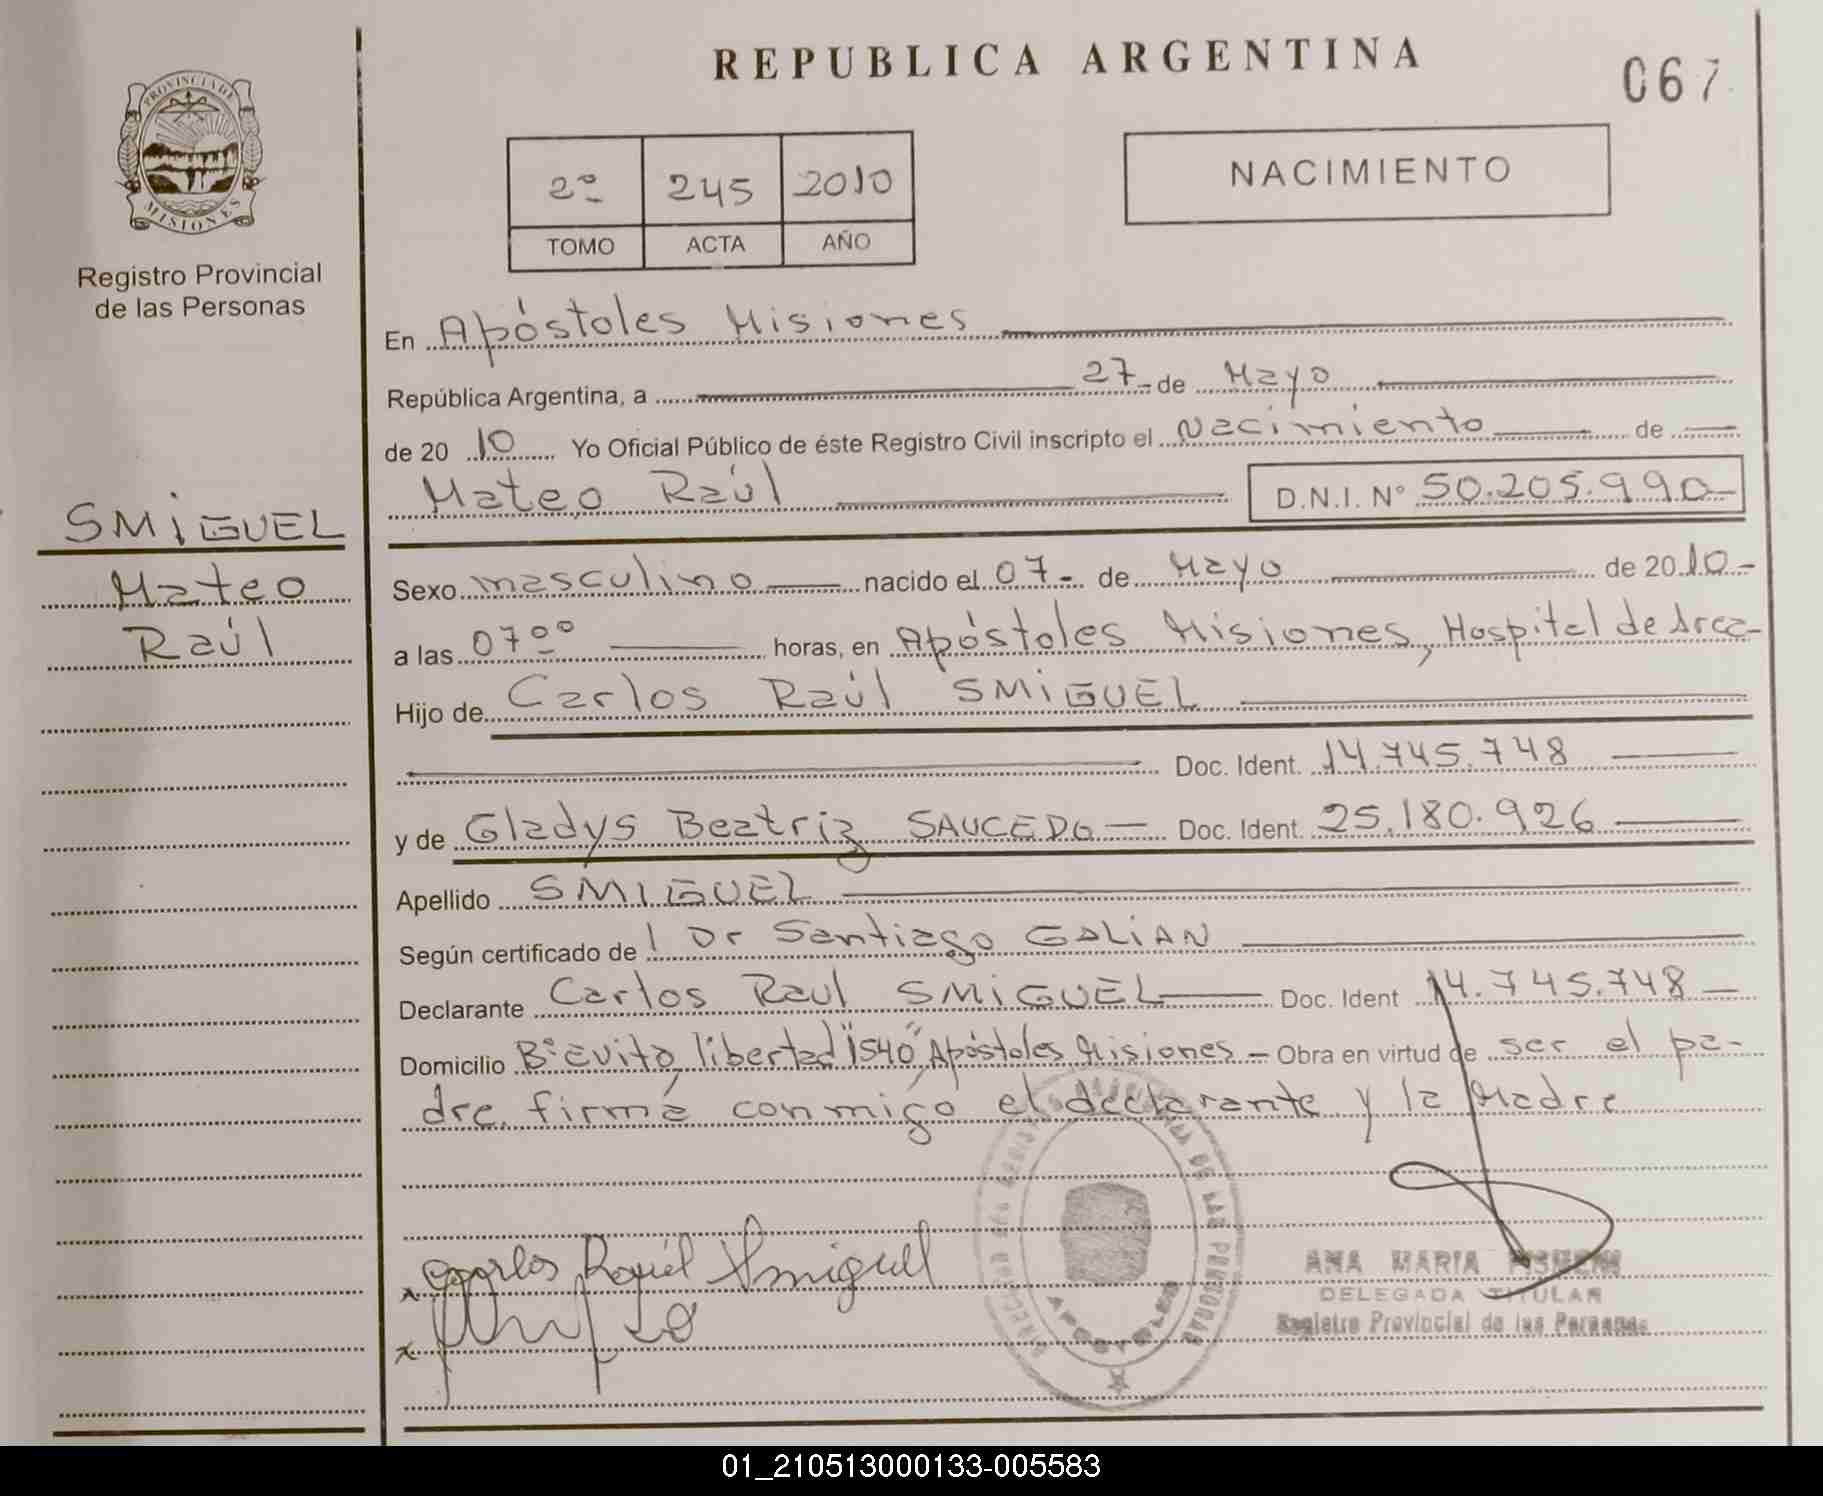 REPUBLICA ARGENTINA
067
PROVINCIA DE
MISIONES
Registro Provincial
de las Personas
2º 245 2010
TOMO ACTA AÑO
NACIMIENTO
SMIGUEL
Mateo
Raúl
En Apóstoles Misiones
República Argentina, a 27 de Mayo
de 20 10 Yo Oficial Público de éste Registro Civil inscripto el Nacimiento de
Mateo Raúl D.N.I. Nº 50.205.990
Sexo masculino nacido el 07 de Mayo de 2010
a las 07 00 horas, en Apóstoles Misiones, Hospital de Area
Hijo de Carlos Raúl SMIGUEL
Doc. Ident. 14.745.748
y de Gladys Beatriz SAUCEDO Doc. Ident. 25.180.926
Apellido SMIGUEL
Según certificado de Dr Santiago GALIAN
Declarante Carlos Raul SMIGUEL Doc. Ident 14.745.748
Domicilio Bº Evita, libertad "1540", Apóstoles Misiones - Obra en virtud de ser el pa-
dre. firma conmigo el declarante y la Madre
x Carlos Raúl Smiguel
x
APOSTOLES
DE LAS PERSONAS
ANA MARIA
DELEGADA TITULAR
Registro Provincial de las Personas
01_210513000133-005583